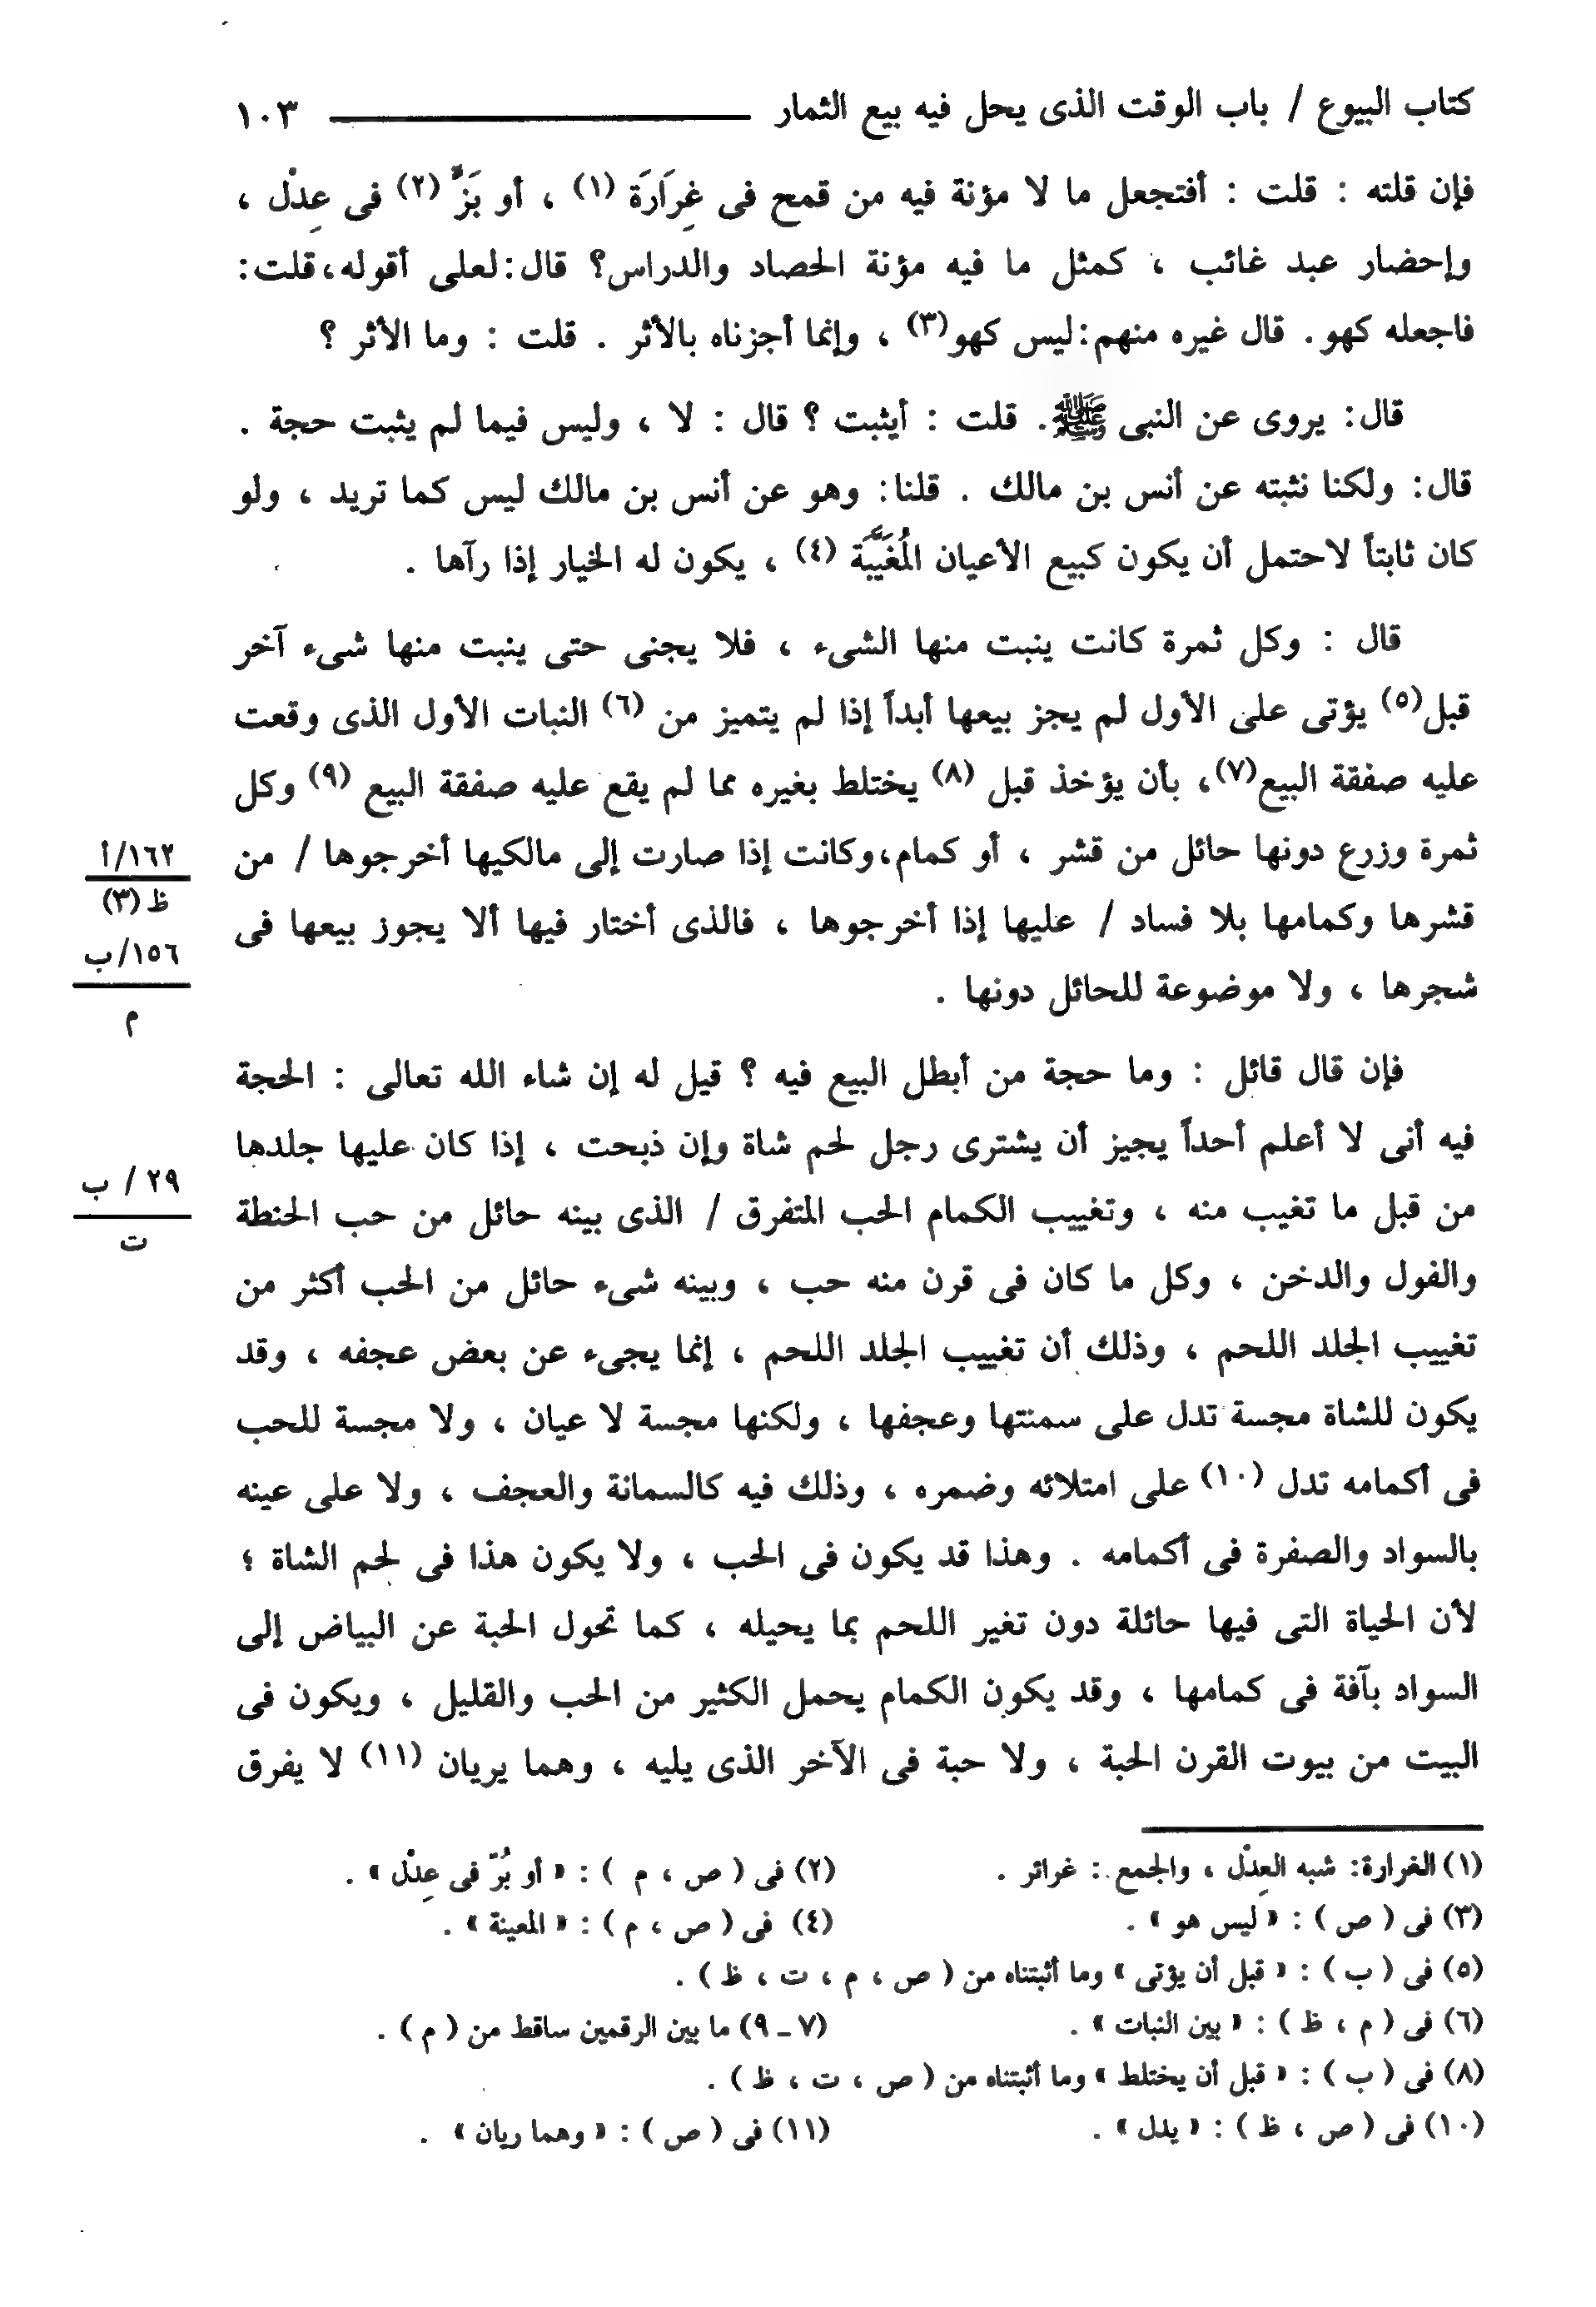 كتاب البيوع / باب الوقت الذى يحل فيه بيع الثمار ١٠٣
فإن قلته : قلت : أفتجعل ما لا مؤنة فيه من قمح فى غِرَارَة (١) ، أو بَزٍّ (٢) فى عِدْل ،
وإحضار عبد غائب ، كمثل ما فيه مؤنة الحصاد والدراس؟ قال: لعلى أقوله، قلت:
فاجعله كهو. قال غيره منهم: ليس كهو(٣) ، وإنما أجزناه بالأثر . قلت : وما الأثر ؟
قال: يروى عن النبى ﷺ. قلت : أيثبت ؟ قال : لا ، وليس فيما لم يثبت حجة .
قال: ولكنا نثبته عن أنس بن مالك . قلنا: وهو عن أنس بن مالك ليس كما تريد ، ولو
كان ثابتاً لاحتمل أن يكون كبيع الأعيان المُغَيَّبَة (٤) ، يكون له الخيار إذا رآها .
قال : وكل ثمرة كانت ينبت منها الشىء ، فلا يجنى حتى ينبت منها شىء آخر
قبل(٥) يؤتى على الأول لم يجز بيعها أبداً إذا لم يتميز من (٦) النبات الأول الذى وقعت
عليه صفقة البيع(٧)، بأن يؤخذ قبل (٨) يختلط بغيره مما لم يقع عليه صفقة البيع (٩) وكل
ثمرة وزرع دونها حائل من قشر ، أو كمام، وكانت إذا صارت إلى مالكيها أخرجوها / من
١٦٢/أ
ظ (٣)
قشرها وكمامها بلا فساد / عليها إذا أخرجوها ، فالذى أختار فيها ألا يجوز بيعها فى
١٥٦/ب
م
شجرها ، ولا موضوعة للحائل دونها .
فإن قال قائل : وما حجة من أبطل البيع فيه ؟ قيل له إن شاء الله تعالى : الحجة
فيه أنى لا أعلم أحداً يجيز أن يشترى رجل لحم شاة وإن ذبحت ، إذا كان عليها جلدها
من قبل ما تغيب منه ، وتغييب الكمام الحب المتفرق / الذى بينه حائل من حب الحنطة
٢٩ / ب
ت
والفول والدخن ، وكل ما كان فى قرن منه حب ، وبينه شىء حائل من الحب أكثر من
تغييب الجلد اللحم ، وذلك أن تغييب الجلد اللحم ، إنما يجىء عن بعض عجفه ، وقد
يكون للشاة مجسة تدل على سمنتها وعجفها ، ولكنها مجسة لا عيان ، ولا مجسة للحب
فى أكمامه تدل (١٠) على امتلائه وضمره ، وذلك فيه كالسمانة والعجف ، ولا على عينه
بالسواد والصفرة فى أكمامه . وهذا قد يكون فى الحب ، ولا يكون هذا فى لحم الشاة ؛
لأن الحياة التى فيها حائلة دون تغير اللحم بما يحيله ، كما تحول الحبة عن البياض إلى
السواد بآفة فى كمامها ، وقد يكون الكمام يحمل الكثير من الحب والقليل ، ويكون فى
البيت من بيوت القرن الحبة ، ولا حبة فى الآخر الذى يليه ، وهما يريان (١١) لا يفرق
(١) الغرارة: شبه العِدْل ، والجمع : غرائر . (٢) فى ( ص ، م ) : « أو بُرّ فى عِدْل » .
(٣) فى ( ص ) : « ليس هو » . (٤) فى ( ص ، م ) : « المعينة » .
(٥) فى ( ب ) : « قبل أن يؤتى » وما أثبتناه من ( ص ، م ، ت ، ظ ) .
(٦) فى ( م ، ظ ) : « بين النبات » . (٧ ـ ٩) ما بين الرقمين ساقط من ( م ) .
(٨) فى ( ب ) : « قبل أن يختلط » وما أثبتناه من ( ص ، ت ، ظ ) .
(١٠) فى ( ص ، ظ ) : « يدل » . (١١) فى ( ص ) : « وهما ريان » .